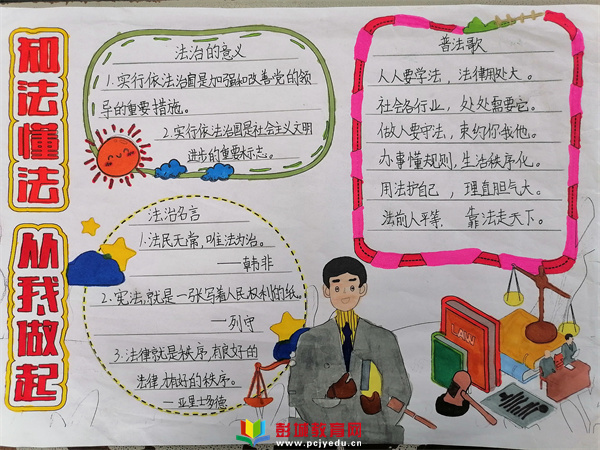 知法懂法
从我做起
法治的意义
1.实行依法治国是加强和改善党的领
导的重要措施。
2.实行依法治国是社会主义文明
进步的重要标志。
普法歌
人人要学法,法律用处大。
社会各行业,处处需要它。
做人要守法,束约你我他。
办事懂规则,生活秩序化。
用法护自己,理直胆气大。
法前人平等,靠法走天下。
法治名言
1.法民无常,唯法为治。
——韩非
2.宪法,就是一张写着人民权利的纸
—列宁
3.法律就是秩序,有良好的
法律才有好的秩序。
—亚里士多德
LAW
彭城教育网
www.pcjyedu.cn